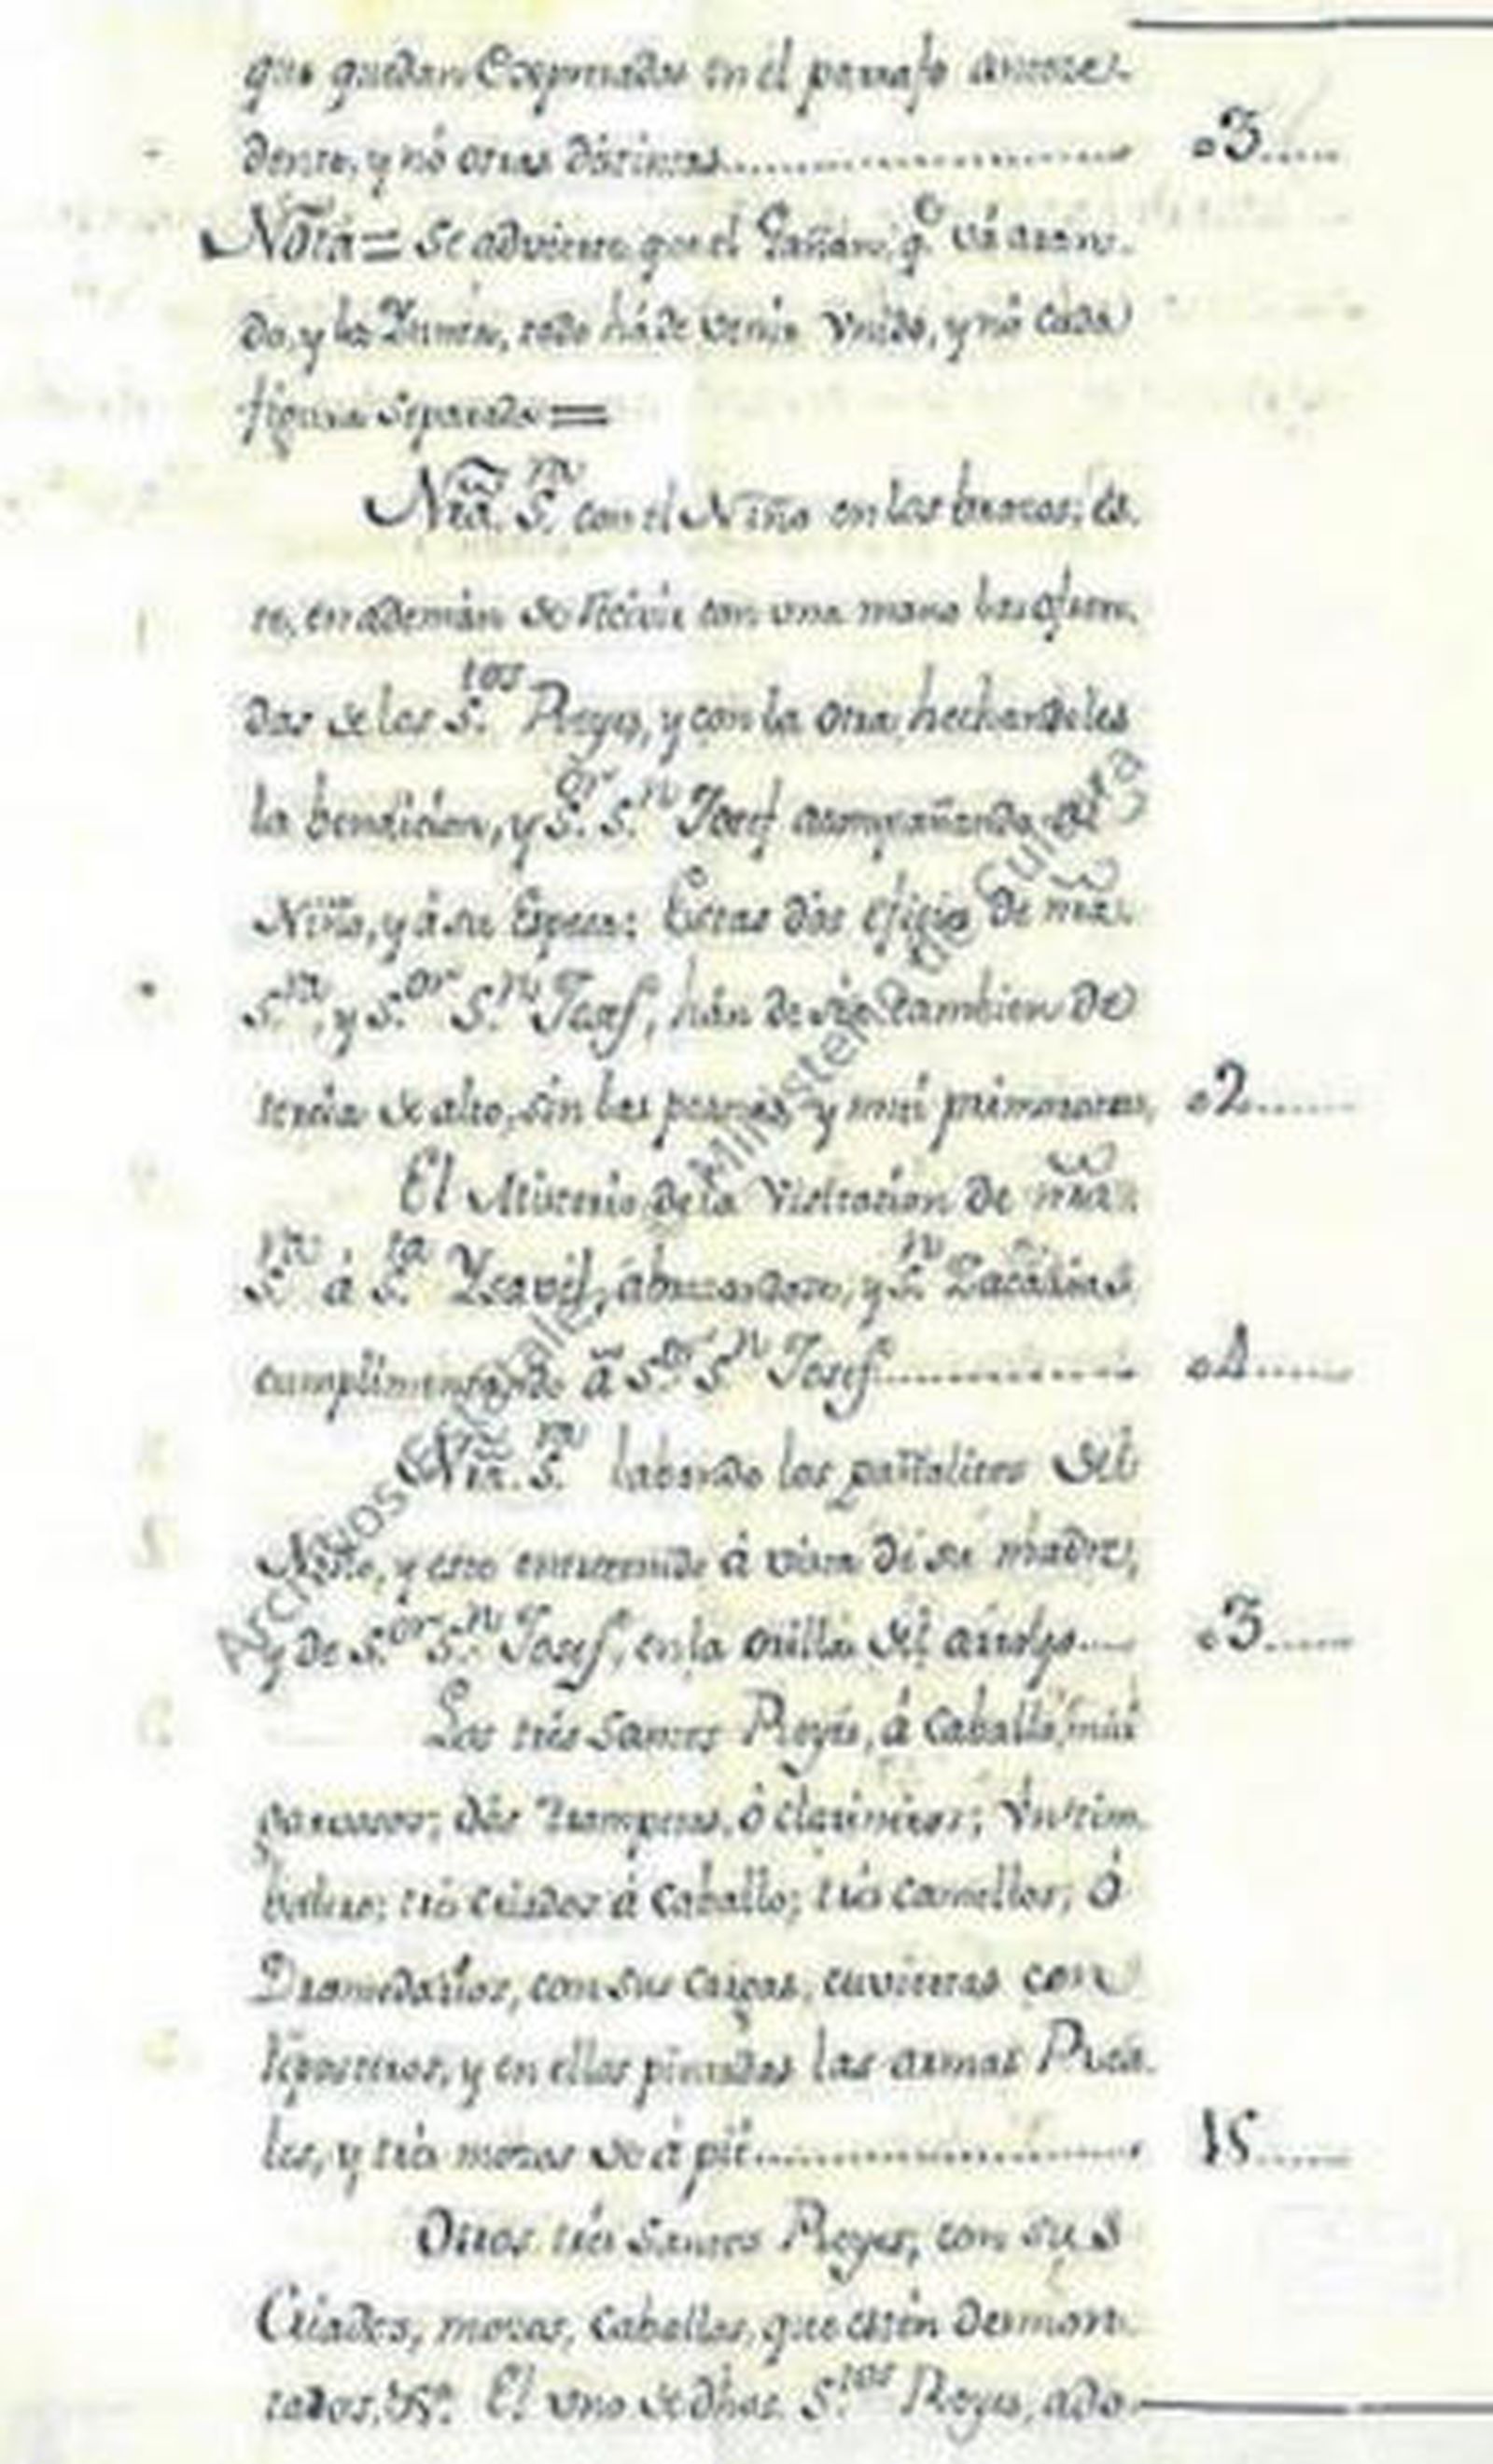 que quedan Expresados en el parrafo antece-
dente, y nó otras distintas............ 03.....
Nota= Se advierte, que el Gañán, q.e vá aran-
do, y la Yunta, todo há de venir Vnido, y nó cada
figura separada=
Nrã. S.ra con el Niño en los brazos; és-
te, en ademán de recivir con una mano las ofren-
das de los S.tos Reyes, y con la otra, hechandoles
la bendición, y S.or S.n Josef acompañando al
Niño, y á su Esposa: Estas dos efigies de nrã.
S.ra, y S.or S.n Josef, hán de ser tambien de
tercia de alto, sin las peanas, y mui primorosas, 02.......
El Misterio de la Visitacion de nrã.
S.ra á S.ta Ysavel, abrazandose, y S.n Zacarías
cumplimentando á S.or S.n Josef............ 04......
Nrã. S.ra labando los pañalicos del
Niño, y este entretenido á vista de su madre,
y de S.or S.n Josef, en la orilla del arroyo.... 03......
Los trés Santos Reyes, á caballo, mui
garvosos; dós Trompetas, ó clarineros; Vn tim-
balero; trés criados á caballo; trés camellos, ó
Dromedarios, con sus cargas, cuviertas con
reposteros, y en ellos pintadas las armas Rea-
les, y trés mozos de á pié............ 15......
Otros trés Santos Reyes, con sus
Criados, mozos, Caballos, que estén desmon-
tados, &.a El uno de dhos. S.tos Reyes, ado-
Archivos Estatales Ministerio de Cultura